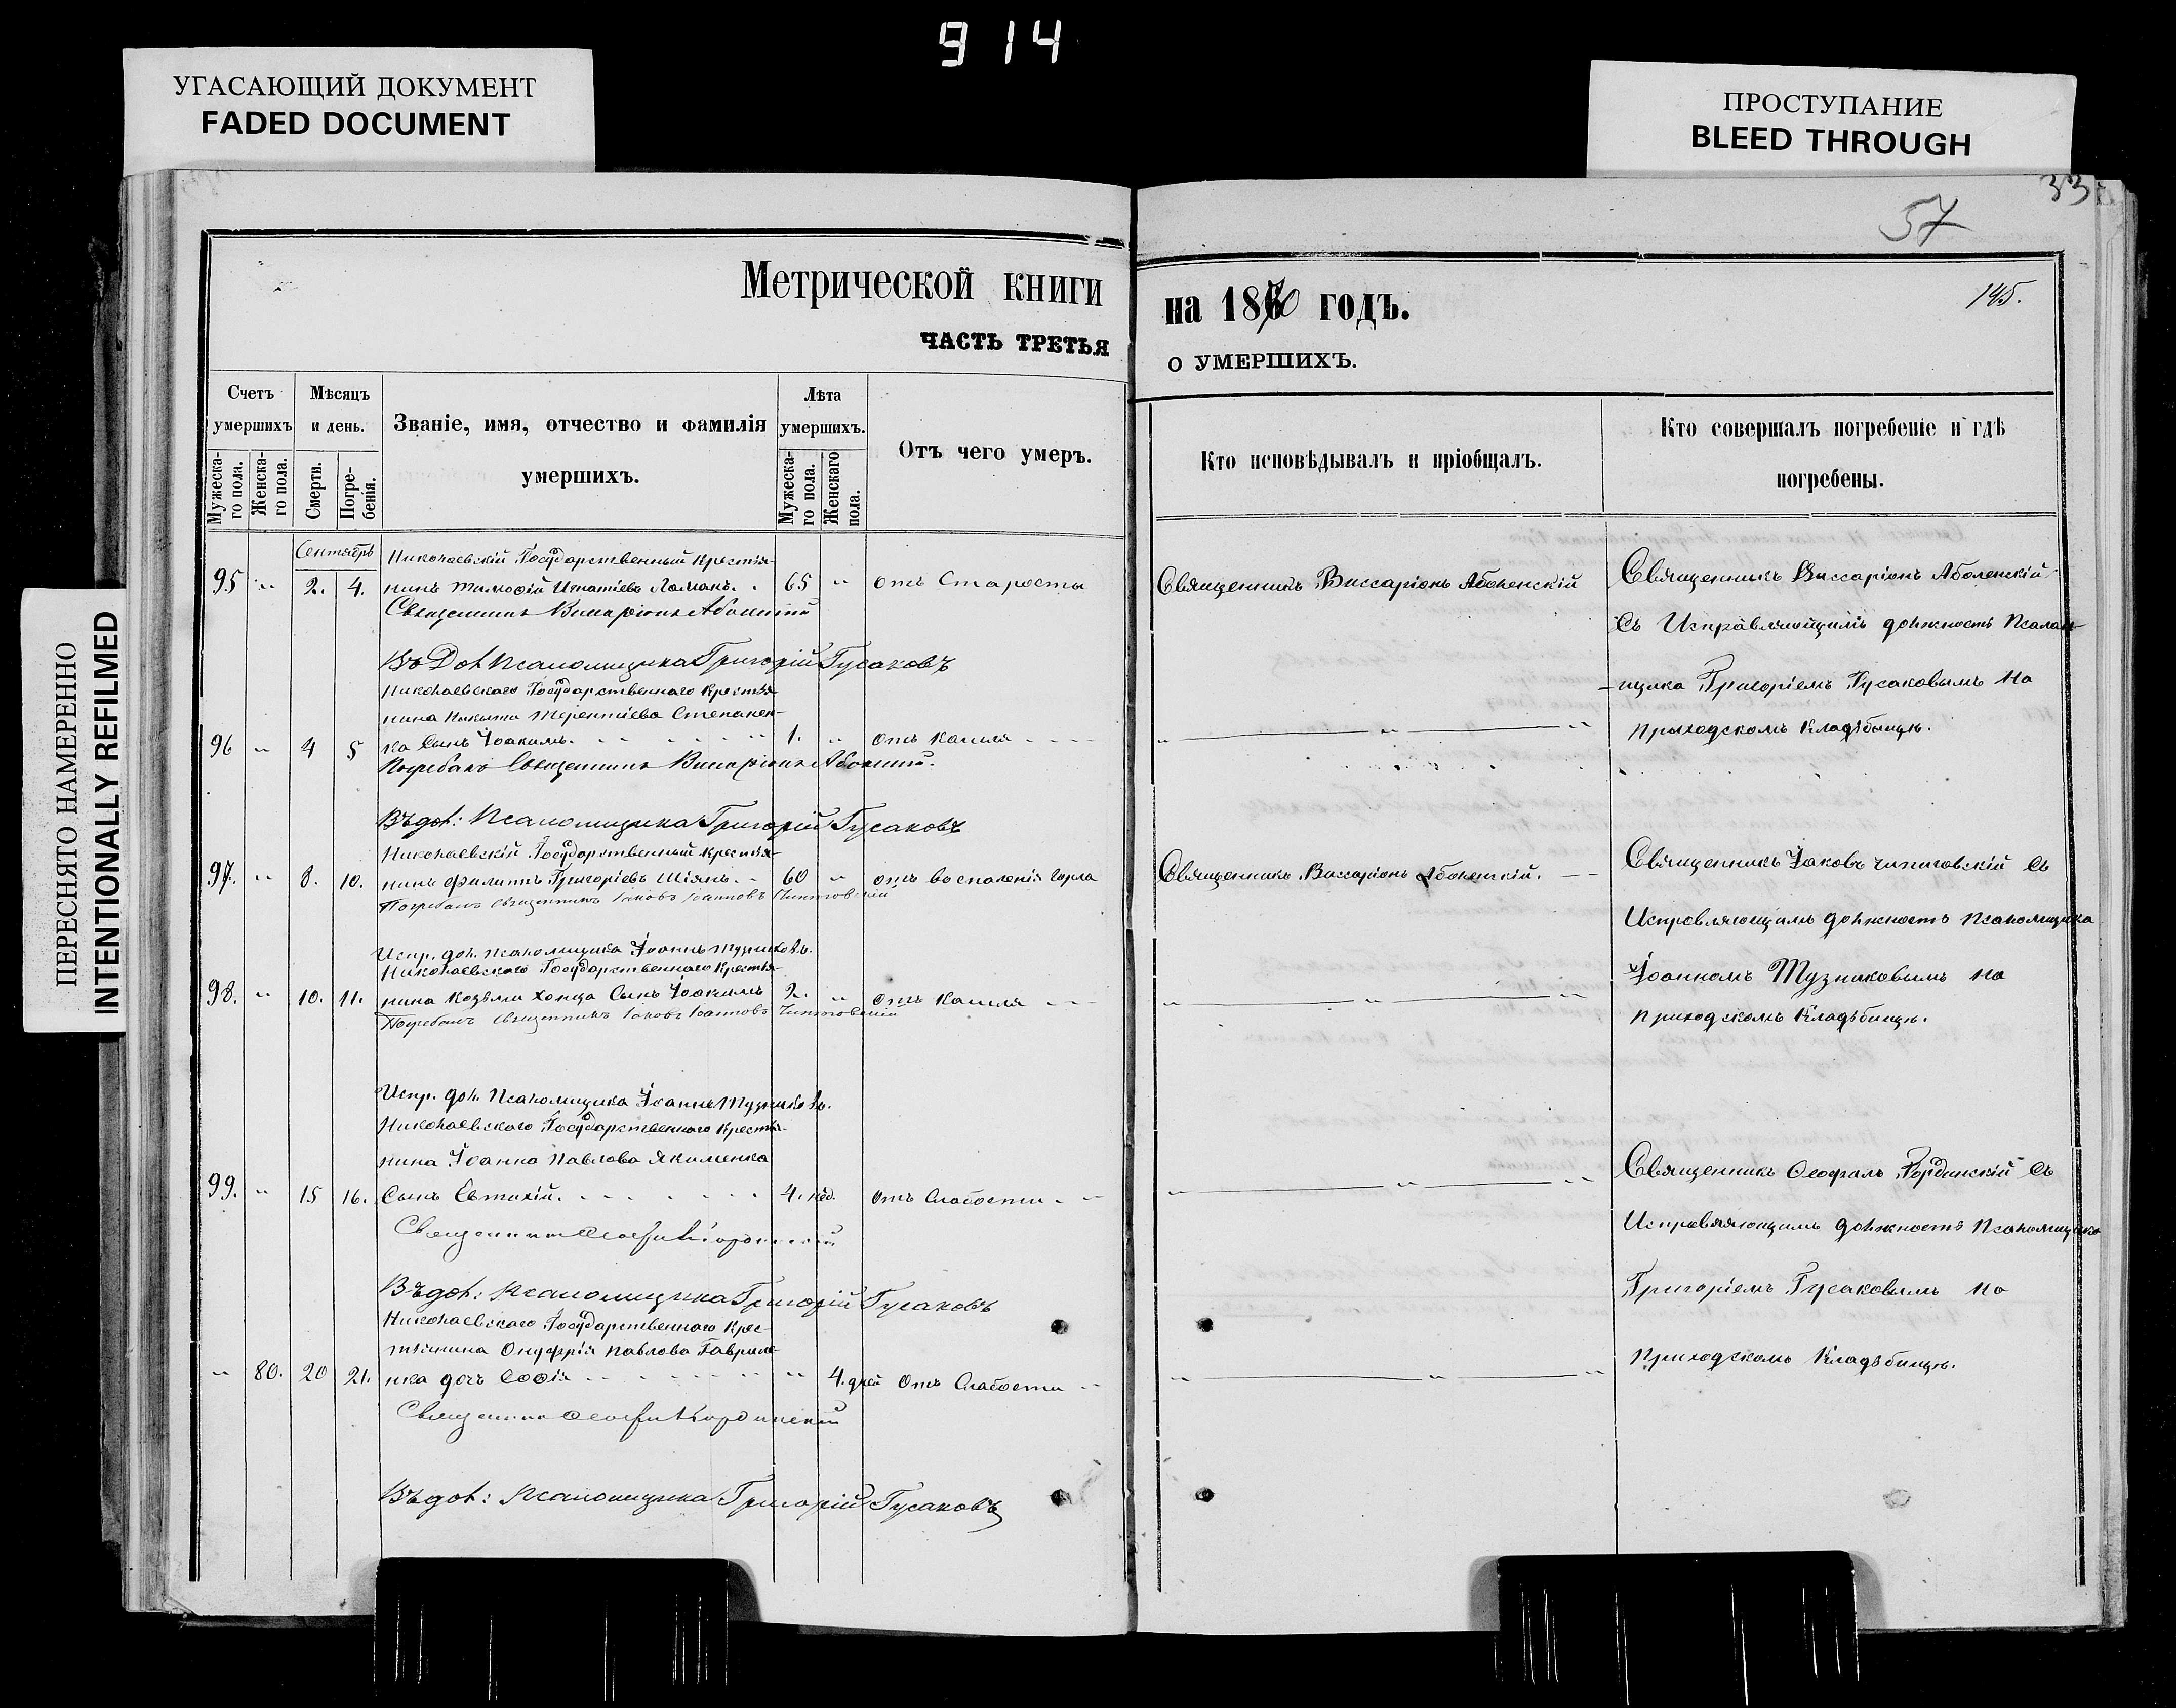 914
УГАСАЮЩИЙ ДОКУМЕНТ
FADED DOCUMENT
ПРОСТУПАНИЕ
BLEED THROUGH
ПЕРЕСНЯТО НАМЕРЕННО
INTENTIONALLY REFILMED
33
57
145.
Метрической книги на 1870 годъ.
ЧАСТЬ ТРЕТЬЯ О УМЕРШИХЪ.
Счетъ умершихъ
Мужескаго пола.
Женскаго пола.
Мѣсяцъ и день.
Смерти.
Погребенія.
Званіе, имя, отчество и фамилія умершихъ.
Лѣта умершихъ.
Мужескаго пола.
Женскаго пола.
Отъ чего умеръ.
Кто исповѣдывалъ и пріобщалъ.
Кто совершалъ погребеніе и гдѣ погребены.
Сентябрь
Николаевскій Государственный крестья-
95 " 2. 4. нинъ Тимофій Игнатіевъ Ломакъ. 65 " отъ Старости
Священникъ Виссаріонъ Аболенскій
Въ Дол Псаломщика Григорій Гусаковъ
Священникъ Виссаріонъ Аболенскій
Священникъ Виссаріонъ Аболенскій
Съ Исправляющимъ должность Псалом-
щика Григоріемъ Гусаковымъ на
приходскомъ Кладбищѣ.
Николаевскаго Государственнаго крестья-
нина Никиты Терентіева Степанен-
96 " 4 5 ка Сынъ Іоакимъ. 1. " отъ кашля
Погребалъ Священникъ Виссаріонъ Аболенскій.
Въ дол: Псаломщика Григорій Гусаковъ
Николаевскій Государственный крестья-
97. " 8. 10. нинъ Филиппъ Григоріевъ Шіянъ. 60 " отъ воспаленія горла
Погребалъ священникъ Іаковъ Іоанновъ Чипиговскій
Испр. дол. псаломщика Іоаннъ Музниковъ.
Священникъ Виссаріонъ Аболенскій.
Священникъ Іаковъ Чипиговскій съ
Исправляющимъ должность псаломщика
Іоанномъ Музниковымъ на
приходскомъ Кладбищѣ.
Николаевскаго Государственнаго крестья-
98. " 10. 11. нина Козьмы Хонца Сынъ Іоакимъ 2. " отъ кашля
Погребалъ священникъ Іаковъ Іоанновъ Чипиговскій
Испр. дол. Псаломщика Іоаннъ Музниковъ.
Николаевскаго Государственнаго крестья-
нина Іоанна Павлова Якименка
99. " 15 16. Сынъ Евтихій. 4. нед. отъ Слабости
Священникъ
Въ дол: псаломщика Григорій Гусаковъ
Священникъ Ѳеофилъ Гординскій съ
Исправляющимъ должность Псаломщика
Григоріемъ Гусаковымъ на
Приходскомъ Кладбищѣ.
Николаевскаго Государственнаго крес-
тьянина Онуфрія Павлова Гаврилен-
" 80. 20 21. ка дочь Софія " 4. дней Отъ Слабости
Священникъ
Въ дол: псаломщика Григорій Гусаковъ